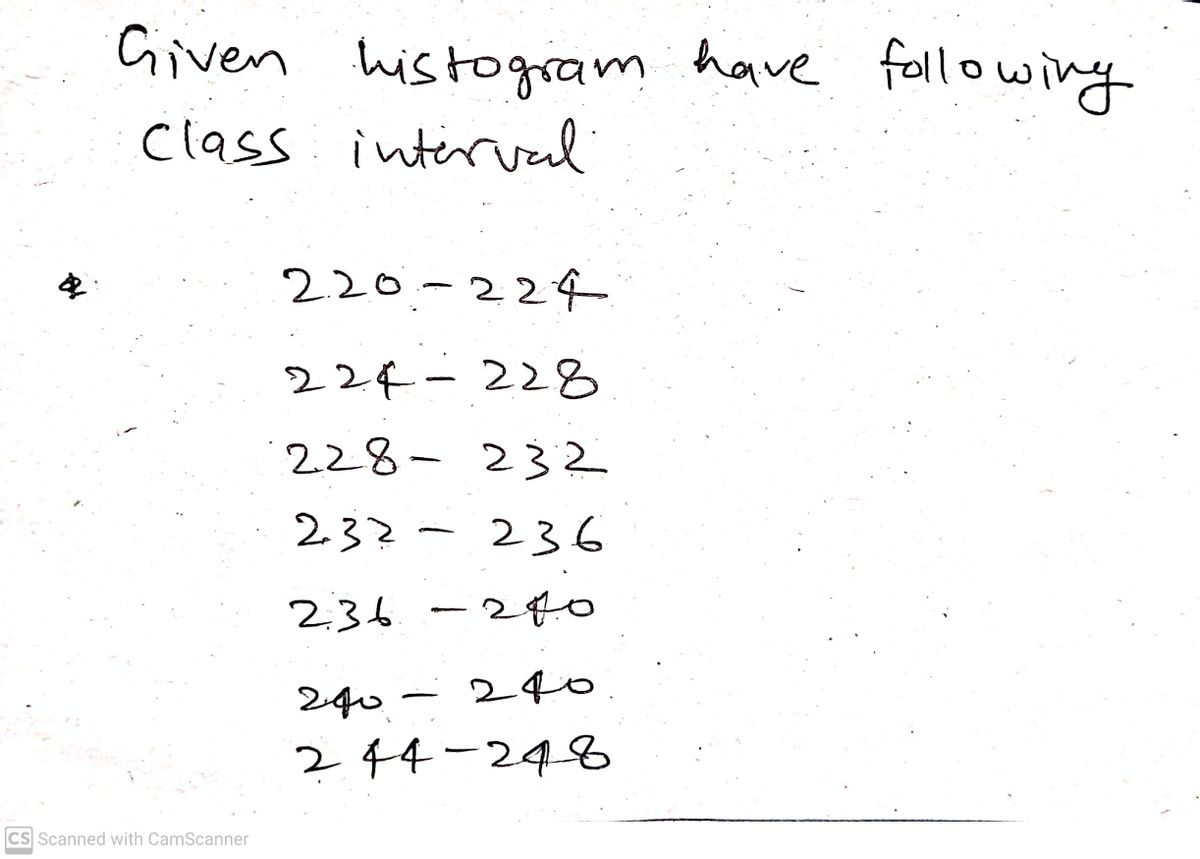 Given histogram have following
class interval
220 - 224
224 - 228
228 - 232
232 - 236
236 - 240
240 - 240
244 - 248
CS Scanned with CamScanner